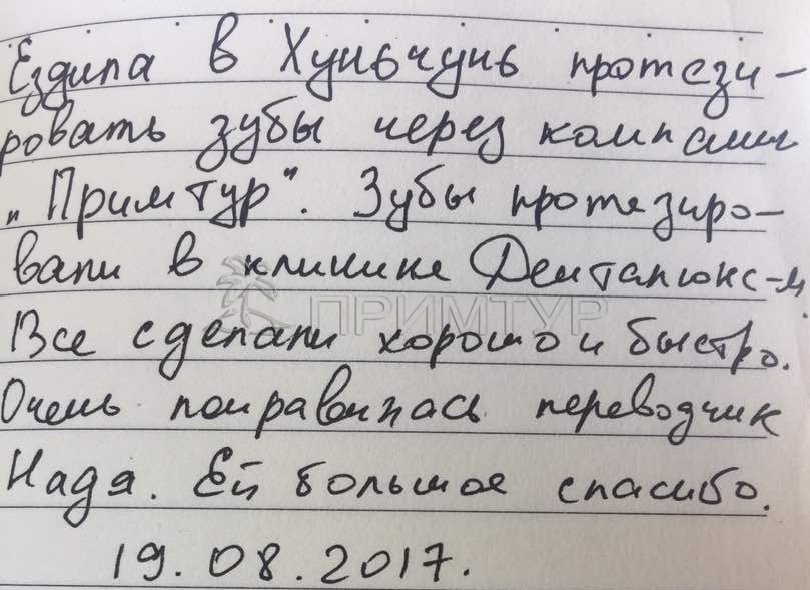 Ездила в Хуньчунь протези-
ровать зубы через компании
„Примтур". Зубы протезиро-
вали в клинике Денталюкс-М.
ПРИМТУР
Все сделали хорошо и быстро.
Очень понравилась переводчик
Надя. Ей большое спасибо.
19.08.2017.